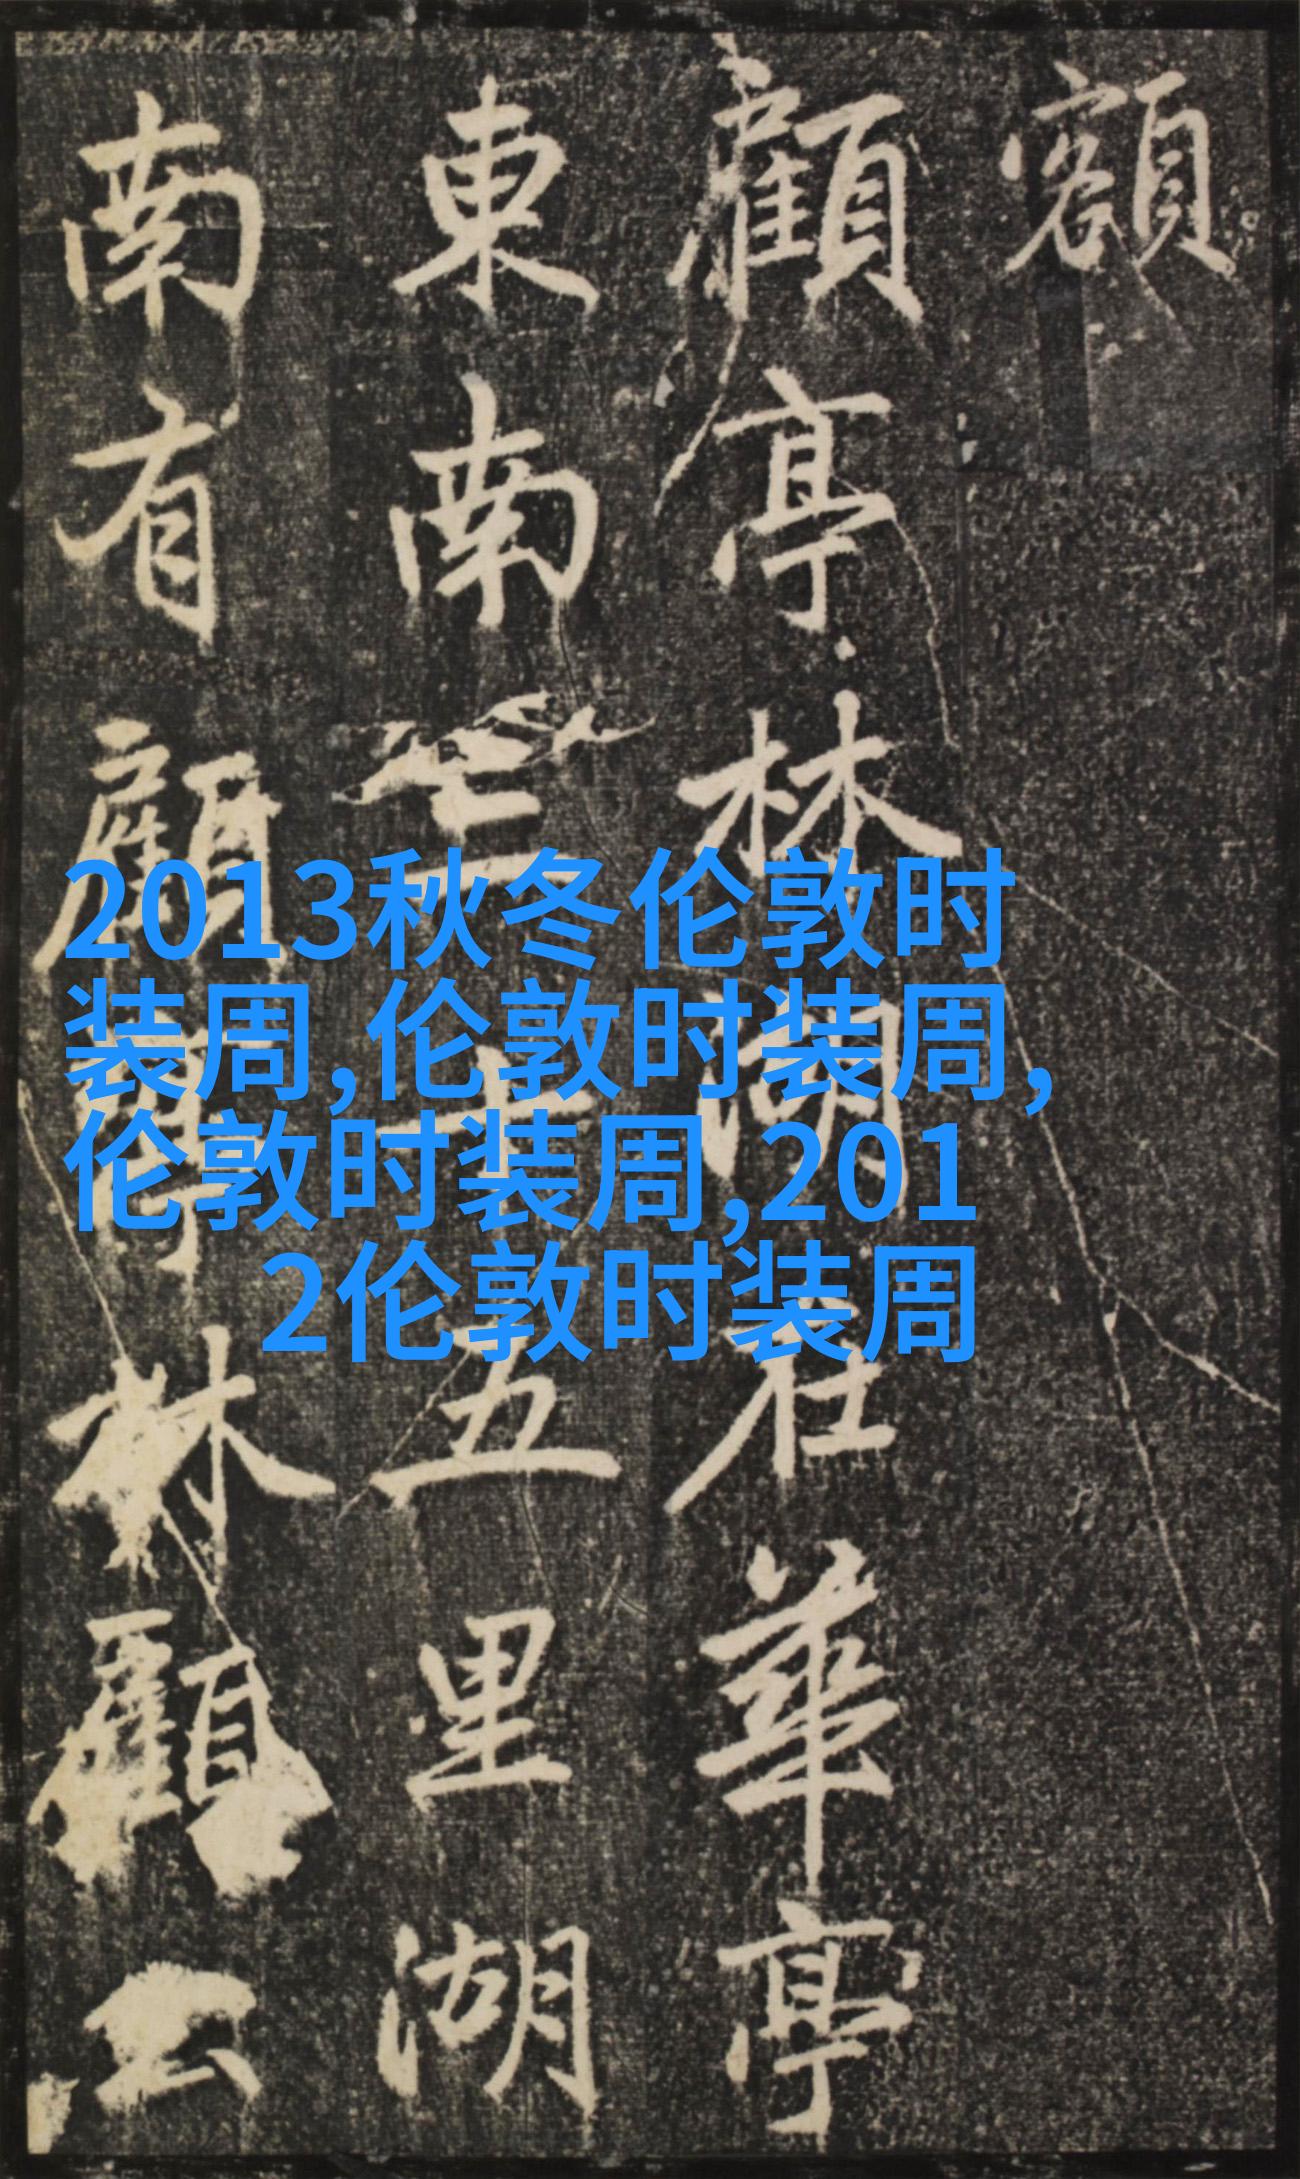 額
顧亭林湖在華亭
東南三十五里湖
南有顧亭林顧公
2013秋冬伦敦时
装周,伦敦时装周,
伦敦时装周,201
2伦敦时装周